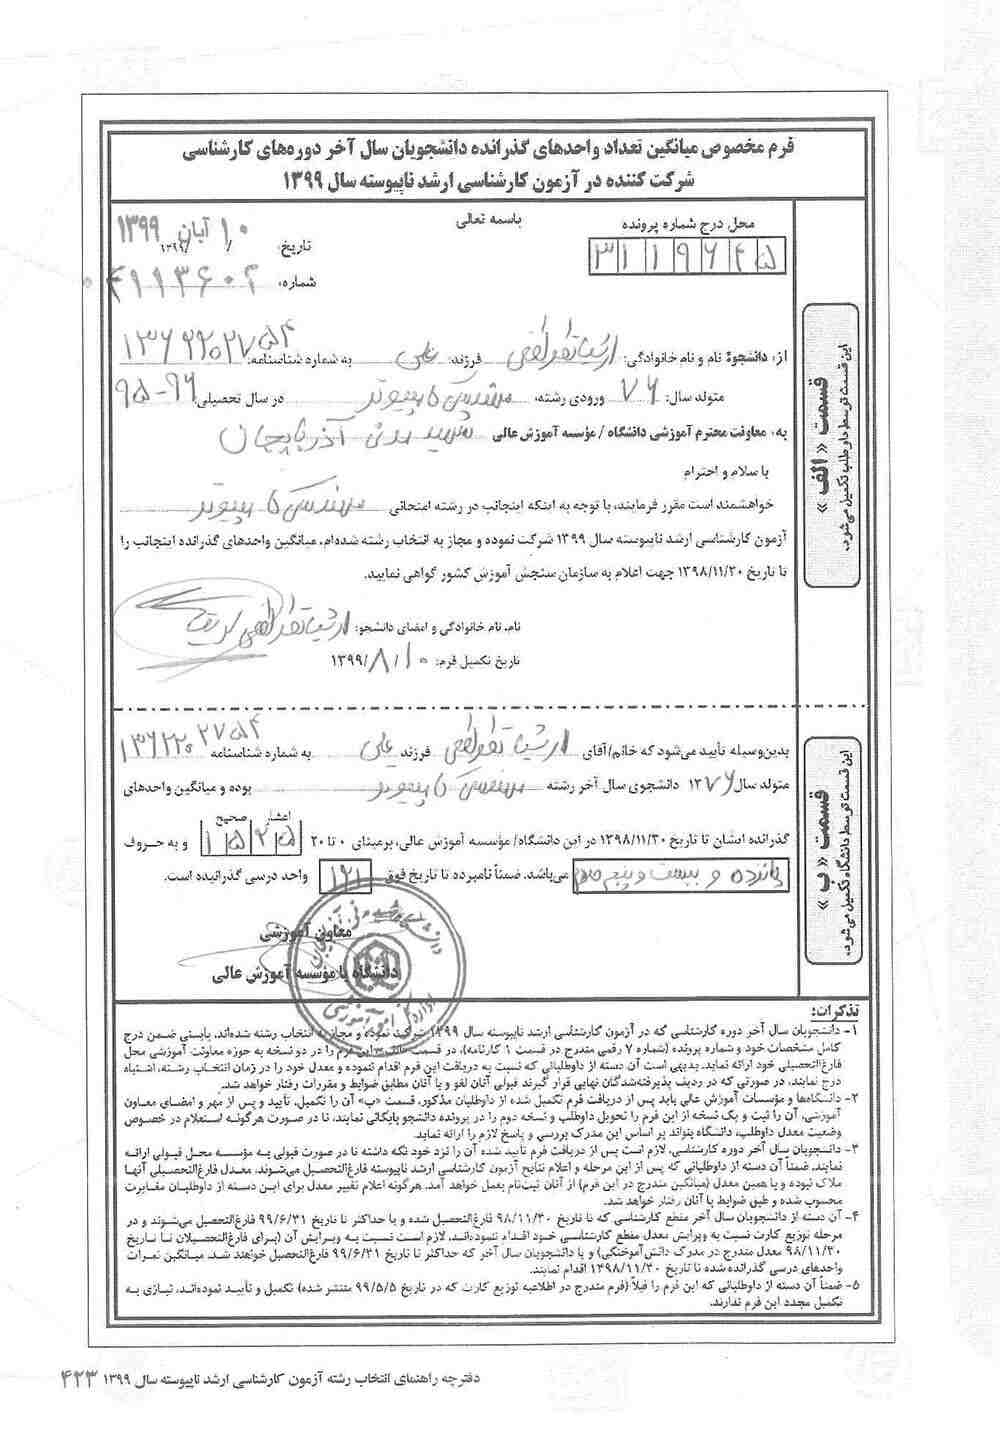 فرم مخصوص میانگین تعداد واحدهای گذرانده دانشجویان سال آخر دوره‌های کارشناسی
شرکت کننده در آزمون کارشناسی ارشد ناپیوسته سال ۱۳۹۹
باسمه تعالی
محل درج شماره پرونده
۳۱۱۹۶۴۵
تاریخ: ۱۰ آبان ۱۳۹۹
شماره:
از: دانشجو؛ نام و نام خانوادگی: فرزند: علی به شماره شناسنامه:
متولد سال: ۷۶ ورودی رشته: مهندسی کامپیوتر در سال تحصیلی: ۹۶-۹۵
به: معاونت محترم آموزشی دانشگاه / مؤسسه آموزش عالی شهید مدنی آذربایجان
با سلام و احترام
خواهشمند است مقرر فرمایند، با توجه به اینکه اینجانب در رشته امتحانی مهندسی کامپیوتر
آزمون کارشناسی ارشد ناپیوسته سال ۱۳۹۹ شرکت نموده و مجاز به انتخاب رشته شده‌ام، میانگین واحدهای گذرانده اینجانب را
تا تاریخ ۱۳۹۸/۱۱/۳۰ جهت اعلام به سازمان سنجش آموزش کشور گواهی نمایید.
نام، نام خانوادگی و امضای دانشجو:
تاریخ تکمیل فرم: ۱۳۹۹/۸/۱۰
قسمت « الف »
این قسمت توسط داوطلب تکمیل می‌شود.
بدین‌وسیله تأیید می‌شود که خانم/آقای فرزند علی به شماره شناسنامه
متولد سال ۱۳۷۶ دانشجوی سال آخر رشته مهندسی کامپیوتر بوده و میانگین واحدهای
اعشار صحیح
گذرانده ایشان تا تاریخ ۱۳۹۸/۱۱/۳۰ در این دانشگاه/ مؤسسه آموزش عالی، برمبنای ۰ تا ۲۰ ۱۵۲۵ و به حروف
پانزده و بیست و پنج صدم می‌باشد. ضمناً نامبرده تا تاریخ فوق ۱۲۱ واحد درسی گذرانیده است.
معاون آموزشی
دانشگاه یا مؤسسه آموزش عالی
قسمت « ب »
این قسمت توسط دانشگاه تکمیل می‌شود.
تذکرات:
۱- دانشجویان سال آخر دوره کارشناسی که در آزمون کارشناسی ارشد ناپیوسته سال ۱۳۹۹ شرکت نموده و مجاز به انتخاب رشته شده‌اند، بایستی ضمن درج
کامل مشخصات خود و شماره پرونده (شماره ۷ رقمی مندرج در قسمت ۱ کارنامه)، در قسمت این فرم را در دو نسخه به حوزه معاونت آموزشی محل
فارغ‌التحصیلی خود ارائه نماید. بدیهی است آن دسته از داوطلبانی که نسبت به دریافت این فرم اقدام ننموده و معدل خود را در زمان انتخاب رشته، اشتباه
درج نمایند، در صورتی که در ردیف پذیرفته‌شدگان نهایی قرار گیرند قبولی آنان لغو و با آنان مطابق ضوابط و مقررات رفتار خواهد شد.
۲- دانشگاه‌ها و مؤسسات آموزش عالی باید پس از دریافت فرم تکمیل شده از داوطلبان مذکور، قسمت «ب» آن را تکمیل، تأیید و پس از مهر و امضای معاون
آموزشی، آن را ثبت و یک نسخه از این فرم را تحویل داوطلب و نسخه دوم را در پرونده دانشجو بایگانی نمایند، تا در صورت هرگونه استعلام در خصوص
وضعیت معدل داوطلب، دانشگاه بتواند بر اساس این مدرک بررسی و پاسخ لازم را ارائه نماید.
۳- دانشجویان سال آخر دوره کارشناسی، لازم است پس از دریافت فرم تأیید شده آن را نزد خود نگه داشته تا در صورت قبولی به مؤسسه محل قبولی ارائه
نمایند. ضمناً آن دسته از داوطلبانی که پس از این مرحله و اعلام نتایج آزمون کارشناسی ارشد ناپیوسته فارغ‌التحصیل می‌شوند، معدل فارغ‌التحصیلی آنها
ملاک نبوده و با همین معدل (میانگین مندرج در این فرم) از آنان ثبت‌نام بعمل خواهد آمد. هرگونه اعلام تغییر معدل برای این دسته از داوطلبان مغایرت
محسوب شده و طبق ضوابط با آنان رفتار خواهد شد.
۴- آن دسته از دانشجویان سال آخر مقطع کارشناسی که تا تاریخ ۹۸/۱۱/۳۰ فارغ‌التحصیل شده و یا حداکثر تا تاریخ ۹۹/۶/۳۱ فارغ‌التحصیل می‌شوند و در
مرحله توزیع کارت نسبت به ویرایش معدل مقطع کارشناسی خود اقدام ننموده‌اند، لازم است نسبت به ویرایش آن (برای فارغ‌التحصیلان تا تاریخ
۹۸/۱۱/۳۰ معدل مندرج در مدرک دانش‌آموختگی) و یا دانشجویان سال آخر که حداکثر تا تاریخ ۹۹/۶/۳۱ فارغ‌التحصیل خواهند شد، میانگین نمرات
واحدهای درسی گذرانده شده تا تاریخ ۱۳۹۸/۱۱/۳۰ اقدام نمایند.
۵- ضمناً آن دسته از داوطلبانی که این فرم را قبلاً (فرم مندرج در اطلاعیه توزیع کارت که در تاریخ ۹۹/۵/۵ منتشر شده) تکمیل و تأیید نموده‌اند، نیازی به
تکمیل مجدد این فرم ندارند.
دفترچه راهنمای انتخاب رشته آزمون کارشناسی ارشد ناپیوسته سال ۱۳۹۹ ۴۲۳